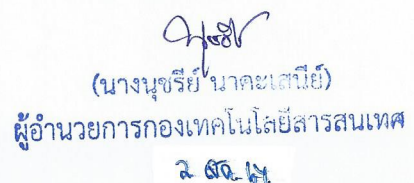 (นางนุชรีย์ นาคะเสนีย์)
ผู้อำนวยการกองเทคโนโลยีสารสนเทศ